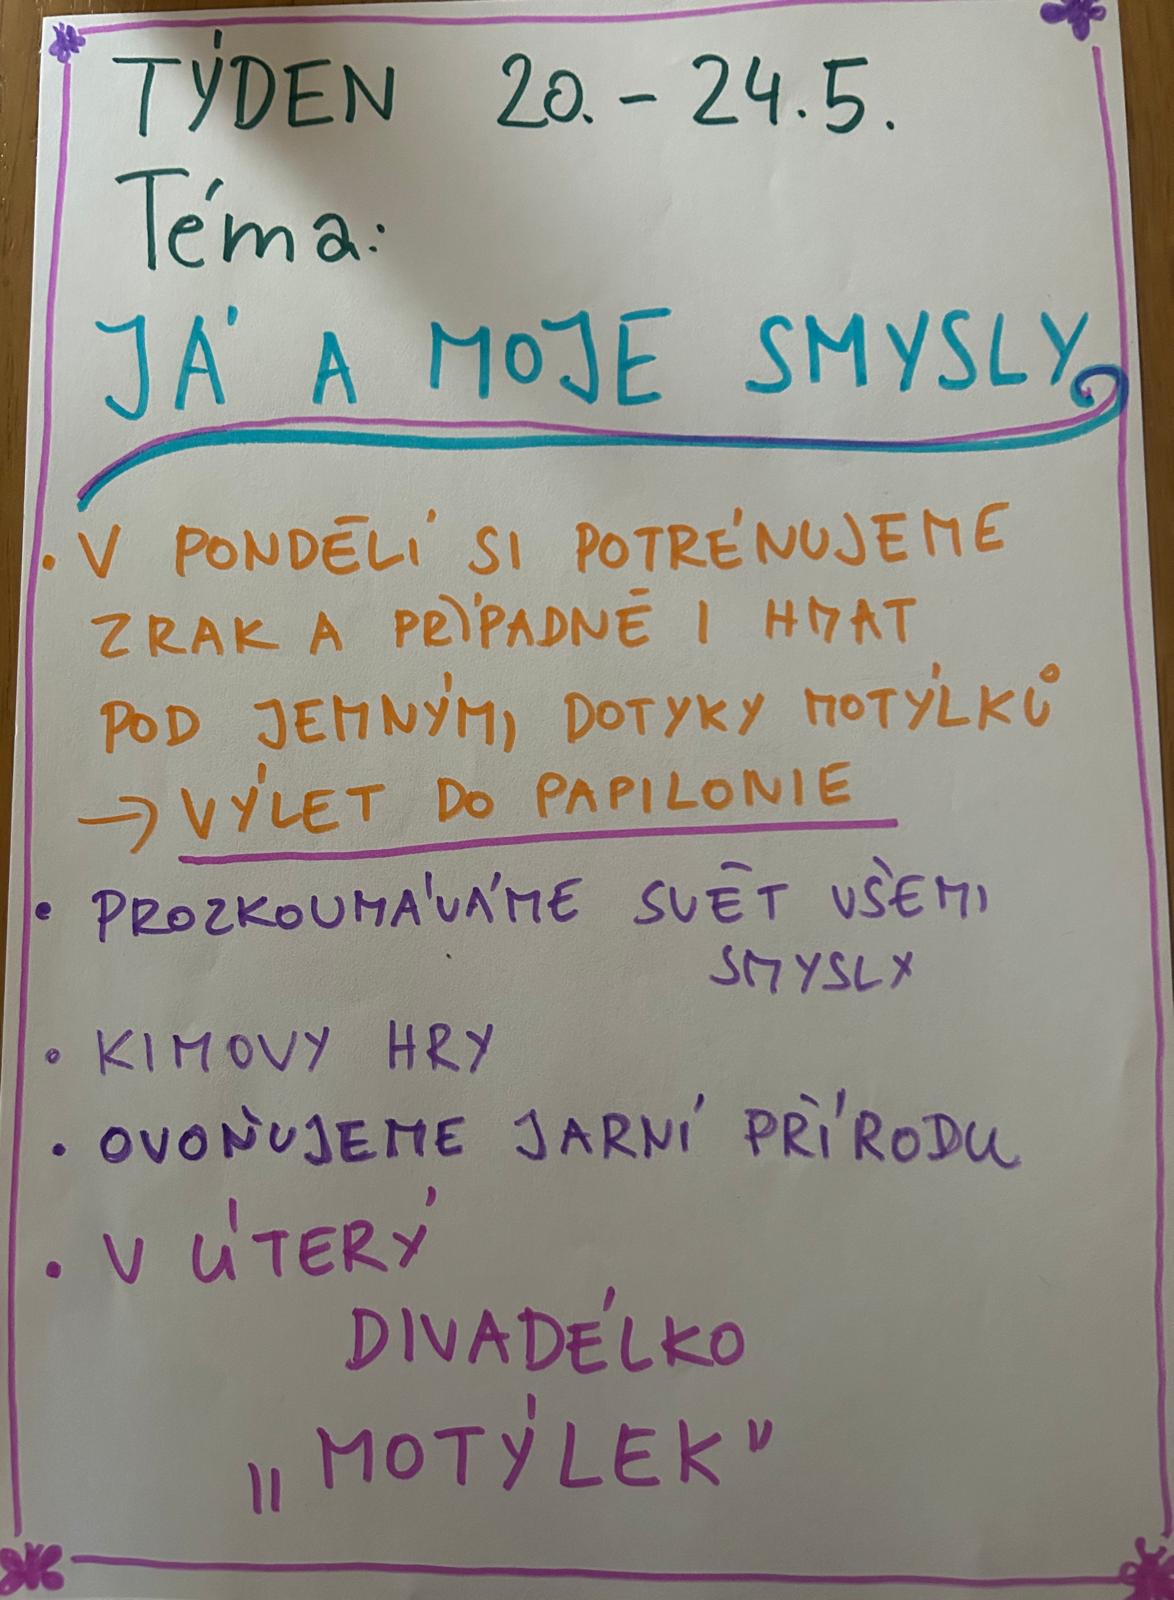 TÝDEN 20. - 24.5.
Téma:
JÁ A MOJE SMYSLY
• V PONDĚLÍ SI POTRÉNUJEME
ZRAK A PŘÍPADNĚ I HMAT
POD JEMNÝMI DOTYKY MOTÝLKŮ
→ VÝLET DO PAPILONIE
• PROZKOUMÁVÁME SVĚT VŠEMI
SMYSLY
• KIMOVY HRY
• OVOŇUJEME JARNÍ PŘÍRODU
• V ÚTERÝ
DIVADÉLKO
„MOTÝLEK"